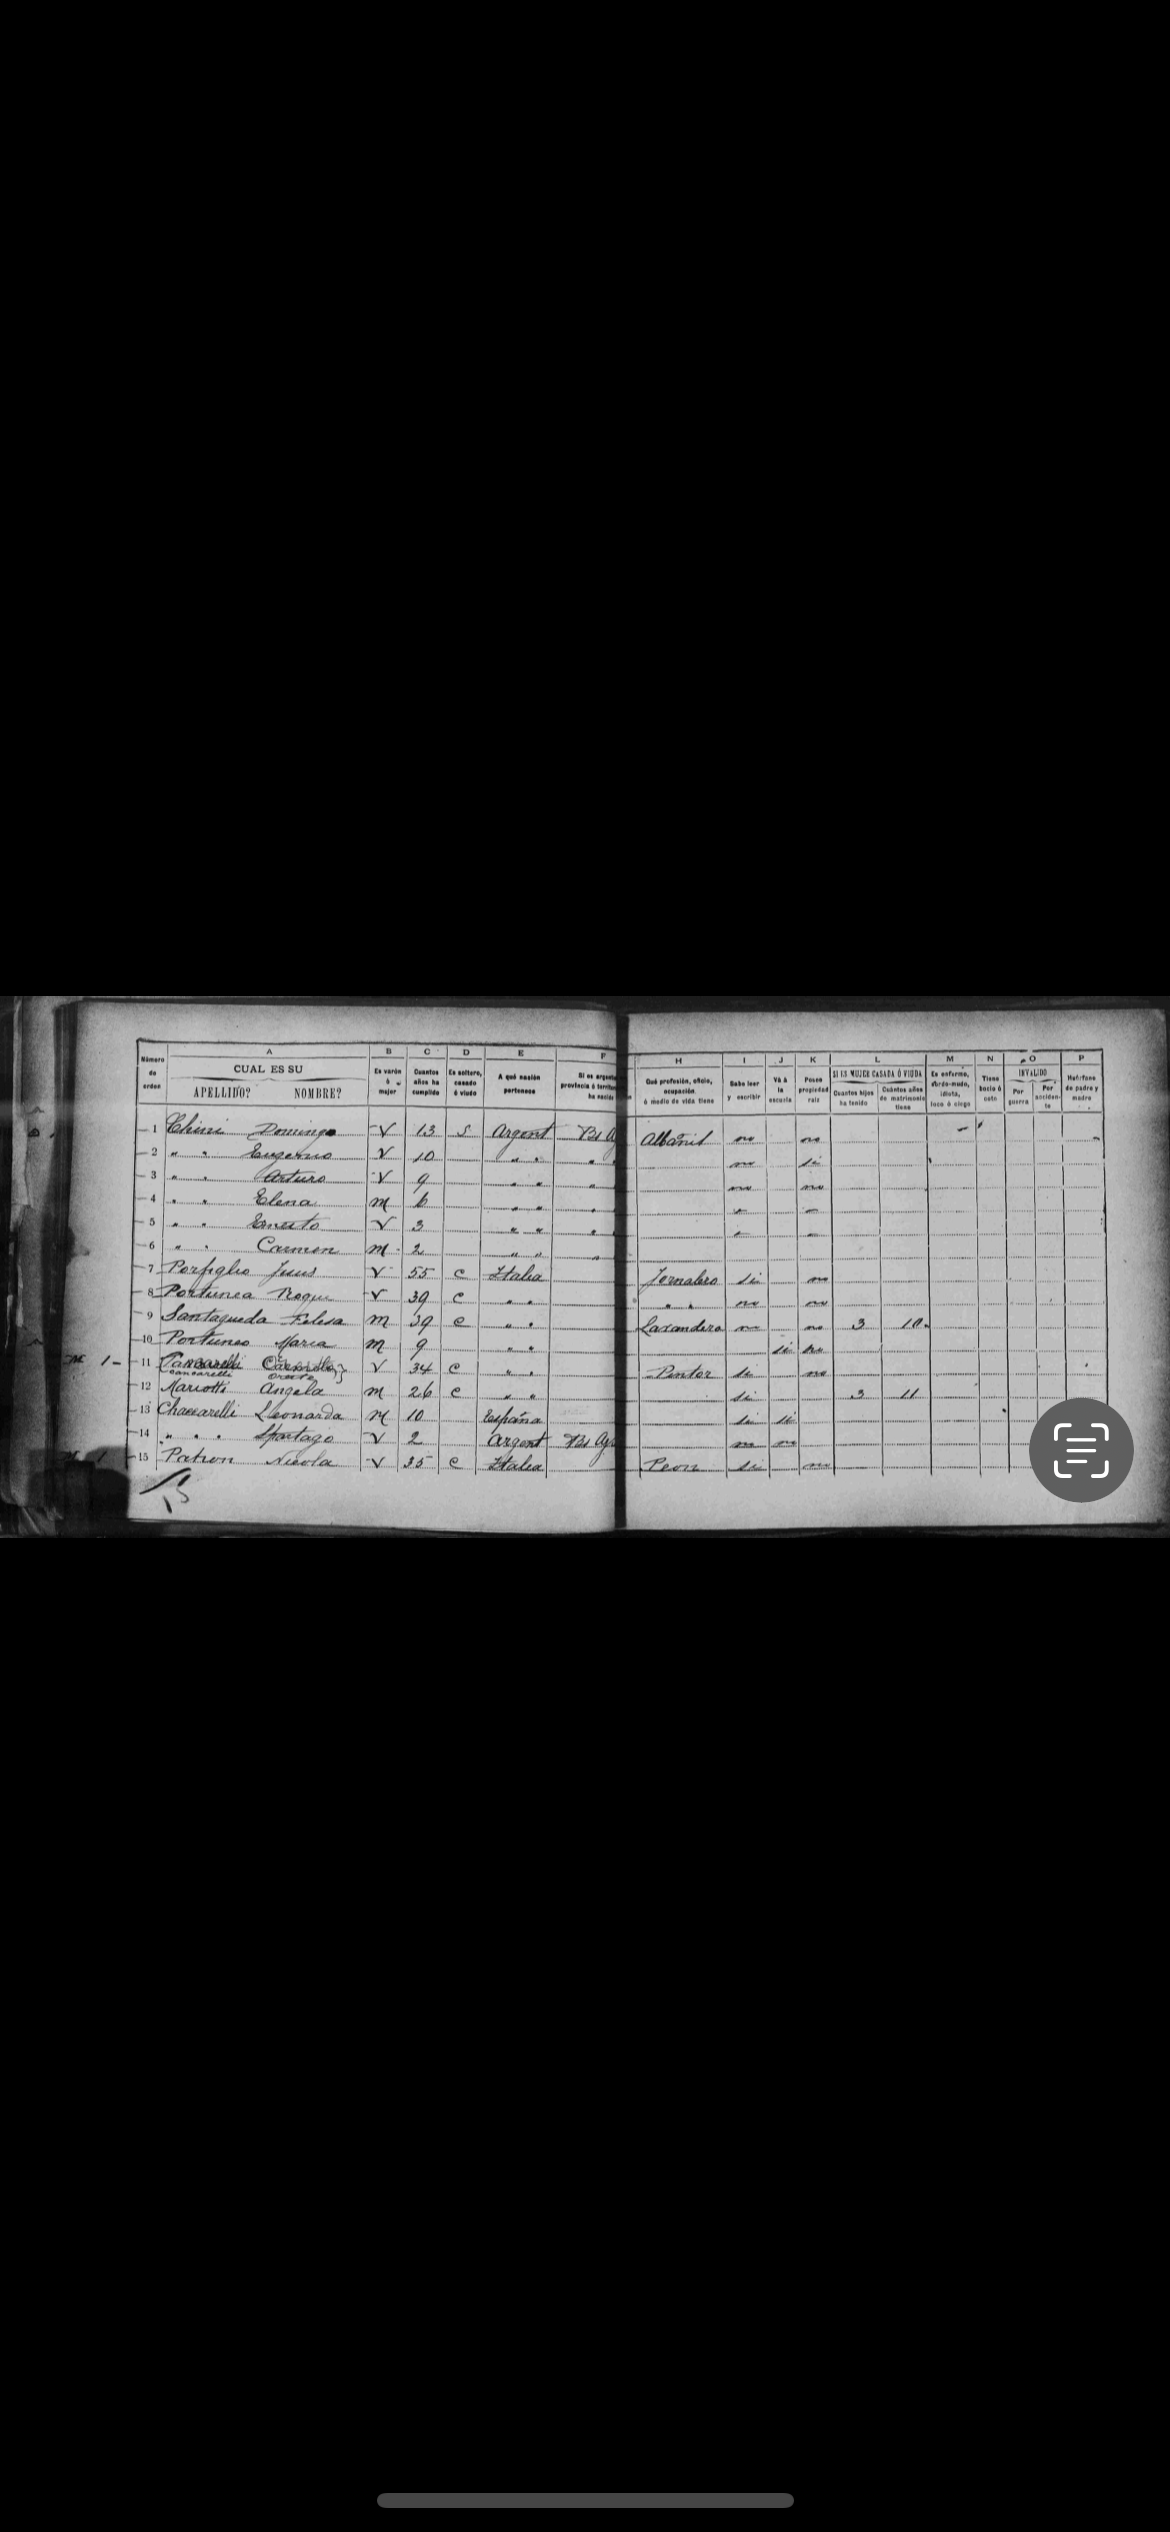 A B C D E F H I J K L M N O P
Número de orden
CUAL ES SU
APELLIDO? NOMBRE?
Es varón ó mujer
Cuantos años ha cumplido
Es soltero, casado ó viudo
A qué nación pertenece
Si es argenti
provincia ó territori
ha nacido
Qué profesión, oficio, ocupación ó medio de vida tiene
Sabe leer y escribir
Vá á la escuela
Posee propiedad raíz
SI ES MUJER CASADA Ó VIUDA
Cuantos hijos ha tenido
Cuántos años de matrimonio tiene
Es enfermo, sordo-mudo, idiota, loco ó ciego
Tiene bocio ó coto
INVALIDO
Por guerra
Por acciden-te
Huérfano de padre y madre
1 Chini Domingo V 13 S Argent Bs A Albañil no no
2 " " Eugenio V 10 " " " no si
3 " " Arturo V 9 " " " no no
4 " " Elena M 6 " " "
5 " " Ernesto V 3 " " "
6 " " Carmen M 2 " " "
7 Porfiglio Jesus V 55 C Italia Jornalero si no
8 Portunea Roque V 39 C " " " " no no
9 Santagueda Felesa M 39 C " " Lavandera no no 3 10
10 Portuneo Maria M 9 " " si no
M 1- 11 Cancarelli Oreste V 34 C " " Pintor si no
12 Mariotti Angela M 26 C " " si 3 11
13 Chaccarelli Leonarda M 10 España si si
14 " " " Spartago V 2 Argent Bs Ays no no
15 Patron Nicola V 35 C Italia Peon si no